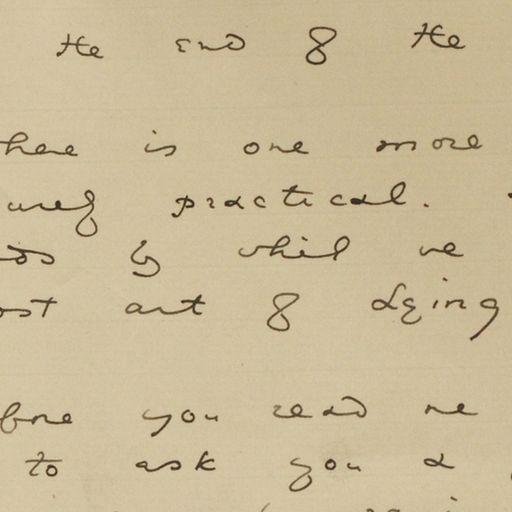 the end of the
here is one more
urely practical.
ds by which we
ost art of dying
efore you read me
to ask you a